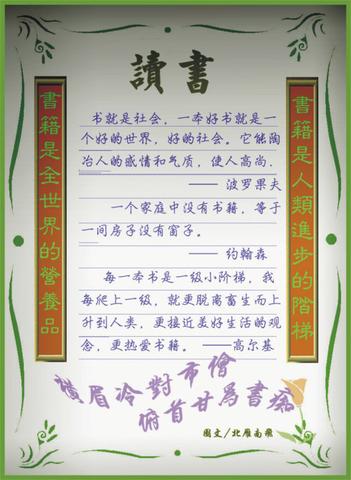 讀書
書籍是人類進步的階梯
書籍是全世界的營養品
书就是社会，一本好书就是一
个好的世界，好的社会。它能陶
冶人的感情和气质，使人高尚。
—— 波罗果夫
一个家庭中没有书籍，等于
一间房子没有窗子。
—— 约翰森
每一本书是一级小阶梯，我
每爬上一级，就更脱离畜生而上
升到人类，更接近美好生活的观
念，更热爱书籍。 ——高尔基
橫眉冷對市儈
俯首甘為書痴
图文/北雁南飛